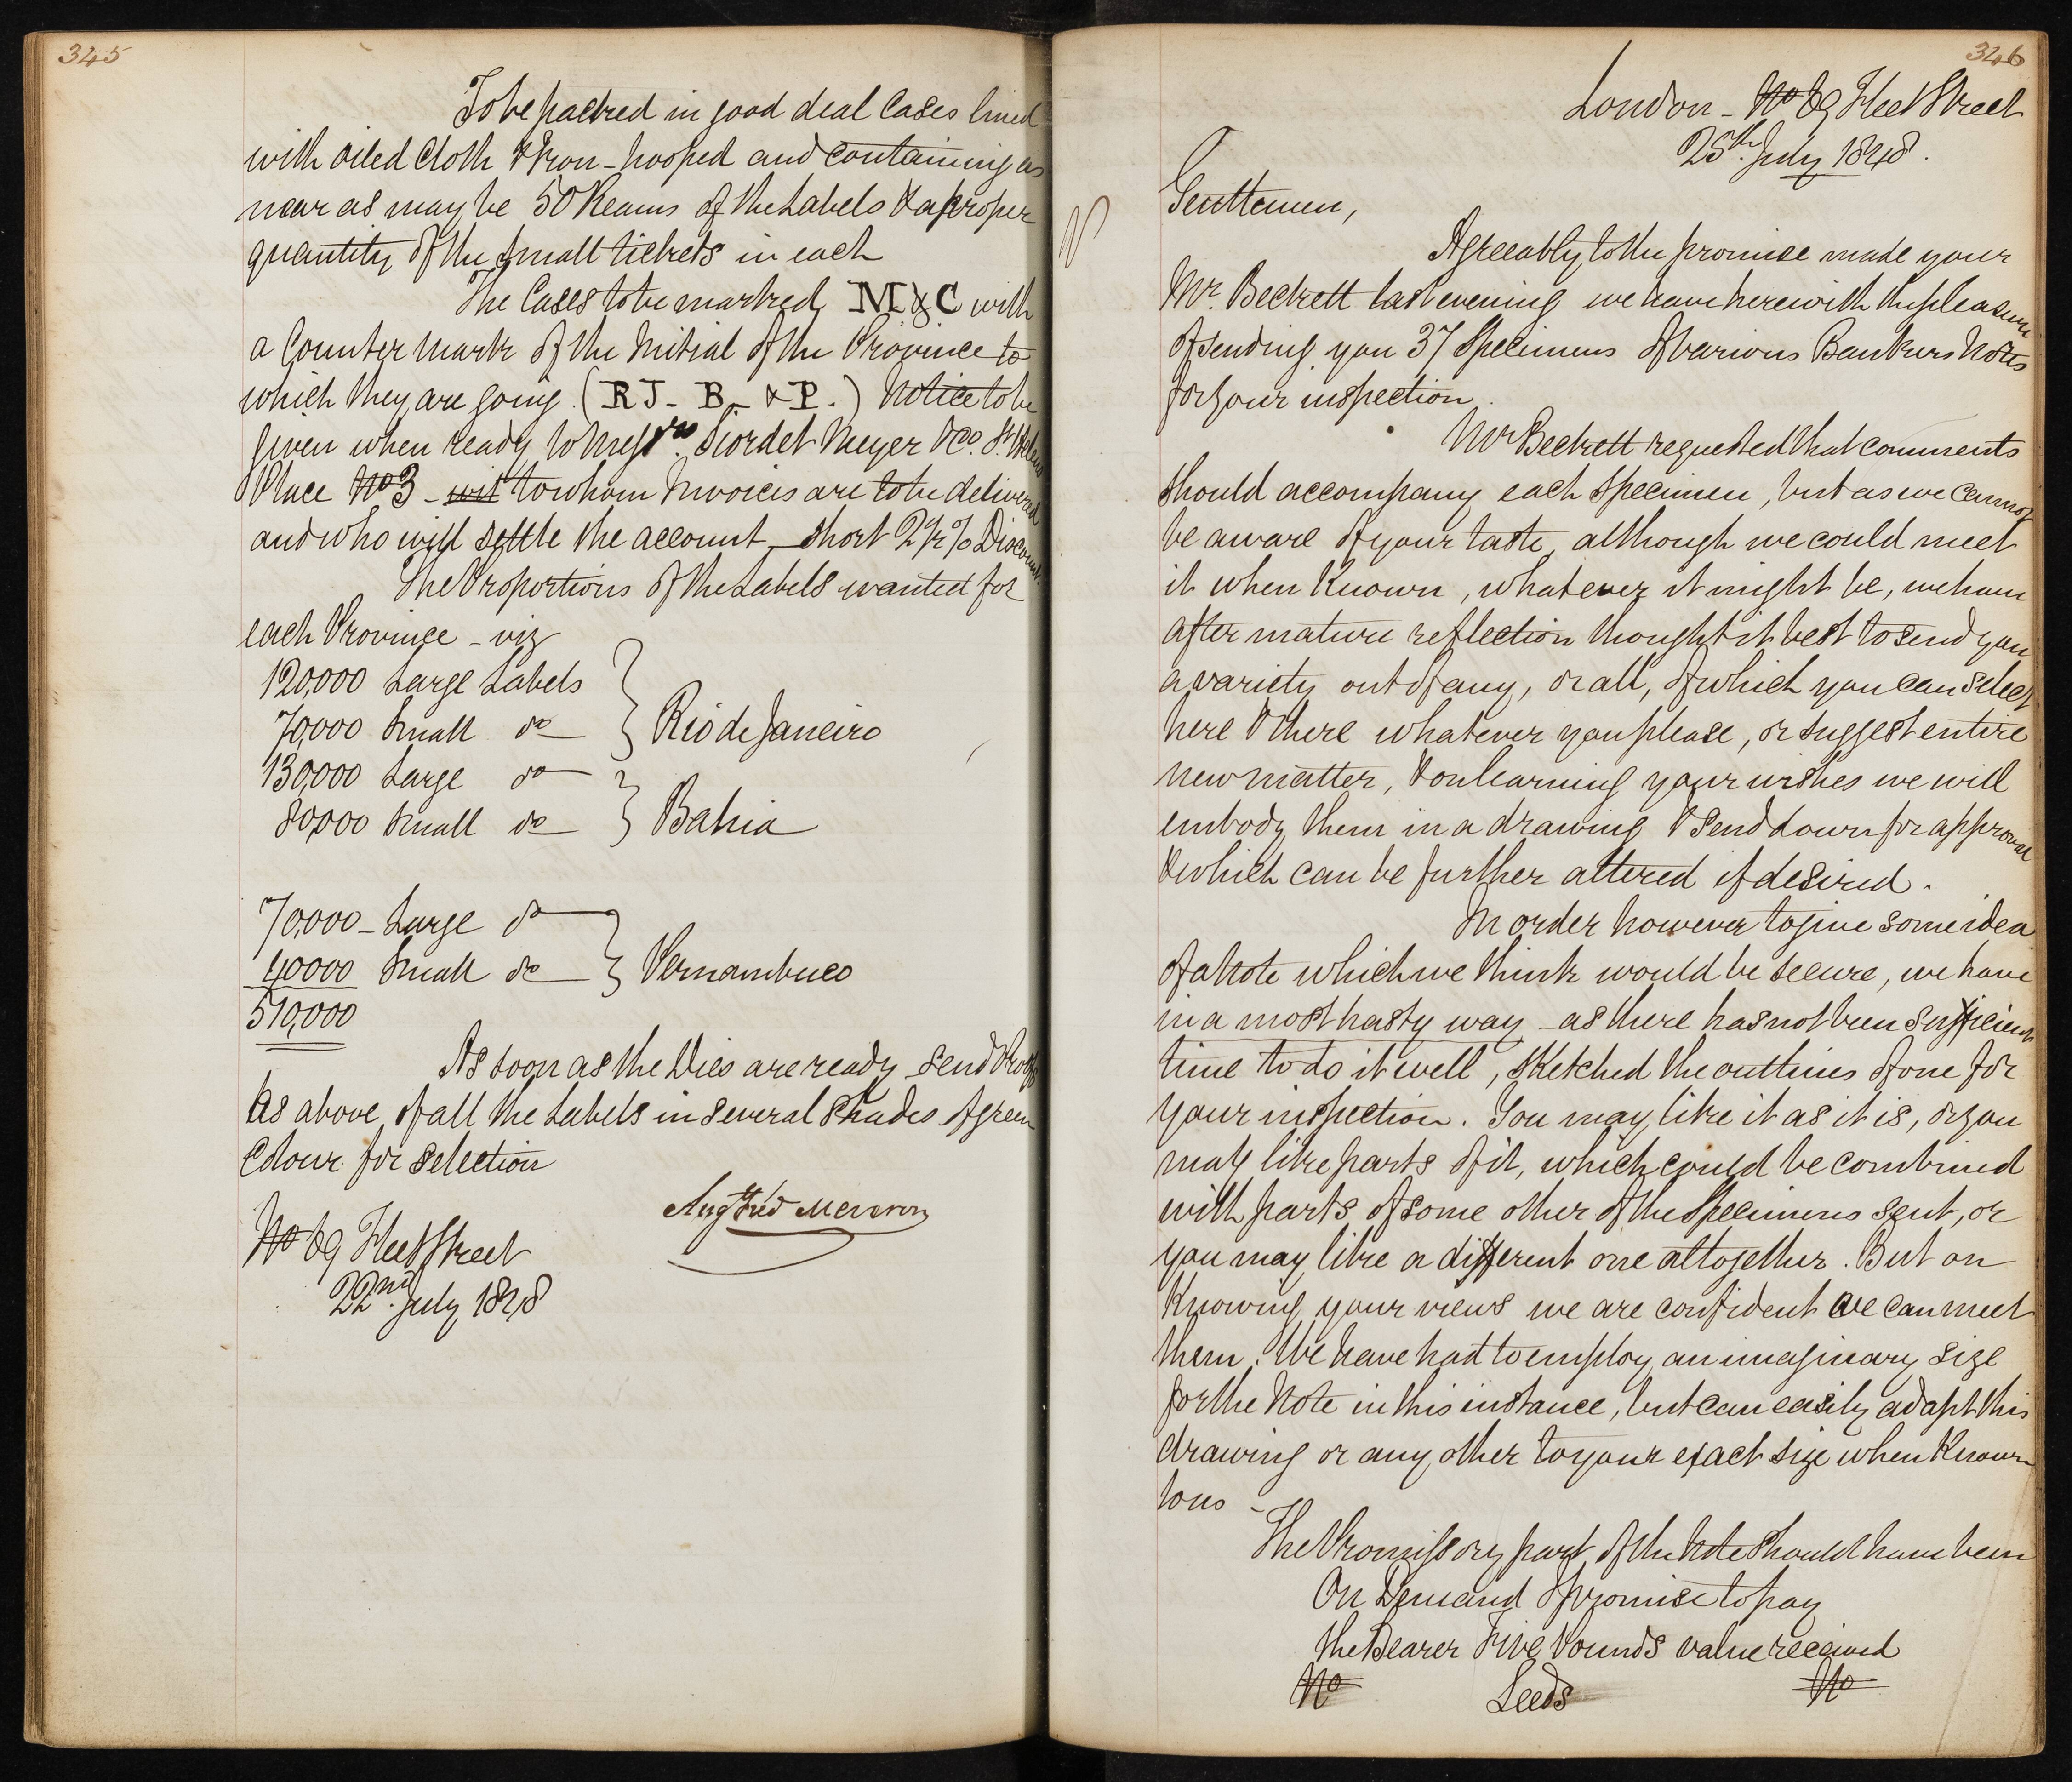 345
To be packed in good deal Cases lined
with oiled Cloth & Iron-hooped and containing as
near as may be 50 Reams of the Labels & a proper
quantity of the small tickets in each
The Cases to be marked M & C with
a Counter Mark of the Initial of the Province to
which they are going (RJ - B - & P.) Notice to be
given when ready to Messrs. Siordet Meyer & Co. St. Helens
Place No 3 - wit to whom Invoices are to be delivered
and who will settle the account - short 2½% Discount.
The Proportions of the Labels wanted for
each Province - viz
120,000 Large Labels
70,000 Small do } Rio de Janeiro
130,000 Large do
80,000 Small do } Bahia
70,000 - Large do
40000 Small do } Pernambuco
510,000
As soon as the Dies are ready send Proofs
As above of all the Labels in several Shades of green
Colour for selection
Augt Fred Mervron
No 69 Fleet Street
22nd. July 1848
346
London - No 69 Fleet Street
25th. July 1848.
Gentlemen,
Agreeably to the promise made your
Mr. Beckett last evening we have herewith the pleasure
of sending you 37 Specimens of various Bankers Notes
for your inspection.
Mr Beckett requested that comments
should accompany each Specimen, but as we cannot
be aware of your taste, although we could meet
it when Known, whatever it might be, we have
after mature reflection thought it best to send you
a variety out of any, or all, of which you can select
here & there whatever you please, or suggest entire
new matter, & on learning your wishes we will
embody them in a drawing & send down for approval
& which can be further altered if desired.
In order however to give some idea
of a Note which we think would be secure, we have
in a most hasty way - as there has not been sufficient
time to do it well, sketched the outlines of one for
your inspection. You may like it as it is, or you
may like parts of it, which could be combined
with parts of some other of the Specimens sent, or
you may like a different one altogether. But on
Knowing your views we are confident we can meet
them. We have had to employ an imaginary size
for the Note in this instance, but can easily adapt this
drawing or any other to your exact size when Known
to us -
The Promissory part of the Note should have been
On Demand I promise to pay
the Bearer Five Pounds value received
No Leeds No